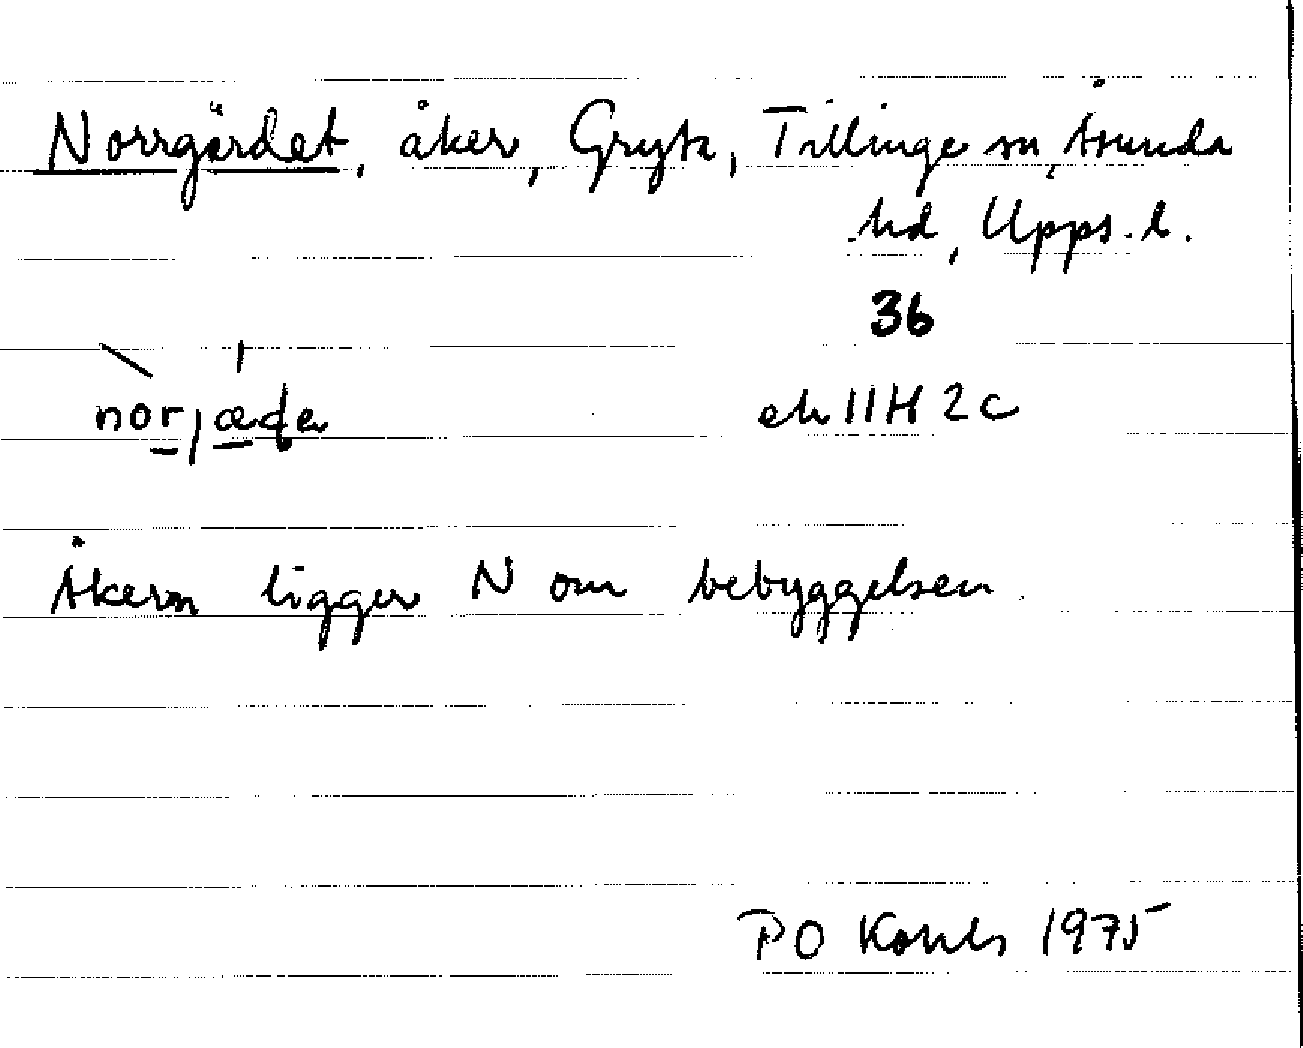 Norrgärdet, åker, Gryta, Tillinge sn, Åsunda
hd, Upps. l.
36
ek 11H 2c
Åkern ligger N om bebyggelsen.
PO 1975